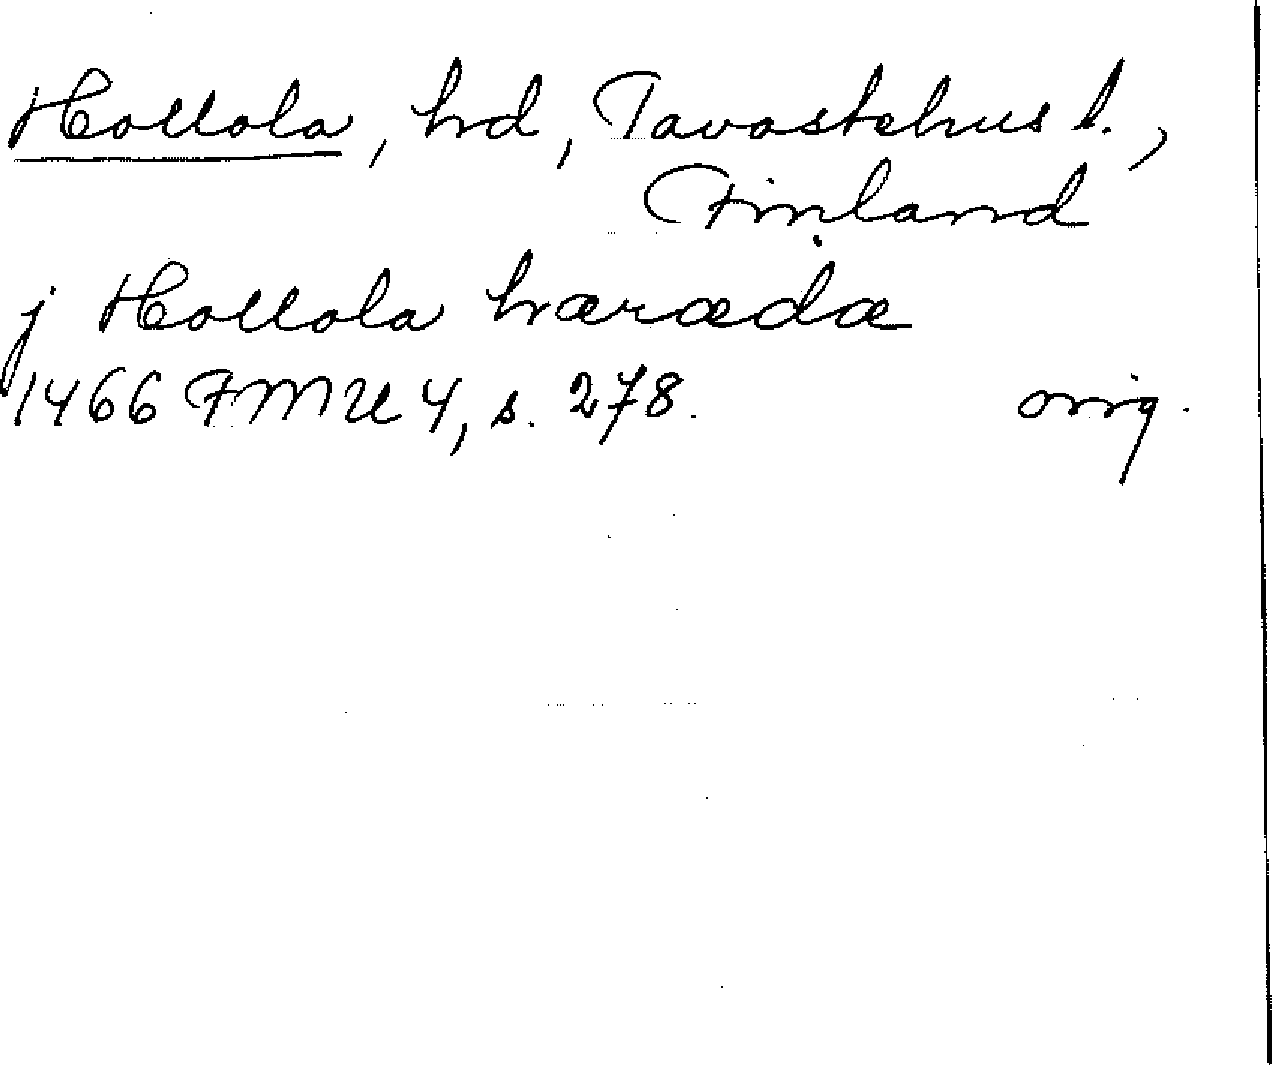 Hollola, hd, Tavastehus l.,
Finland
j Hollola hæræda
1466 FMU 4, s. 278. orig.